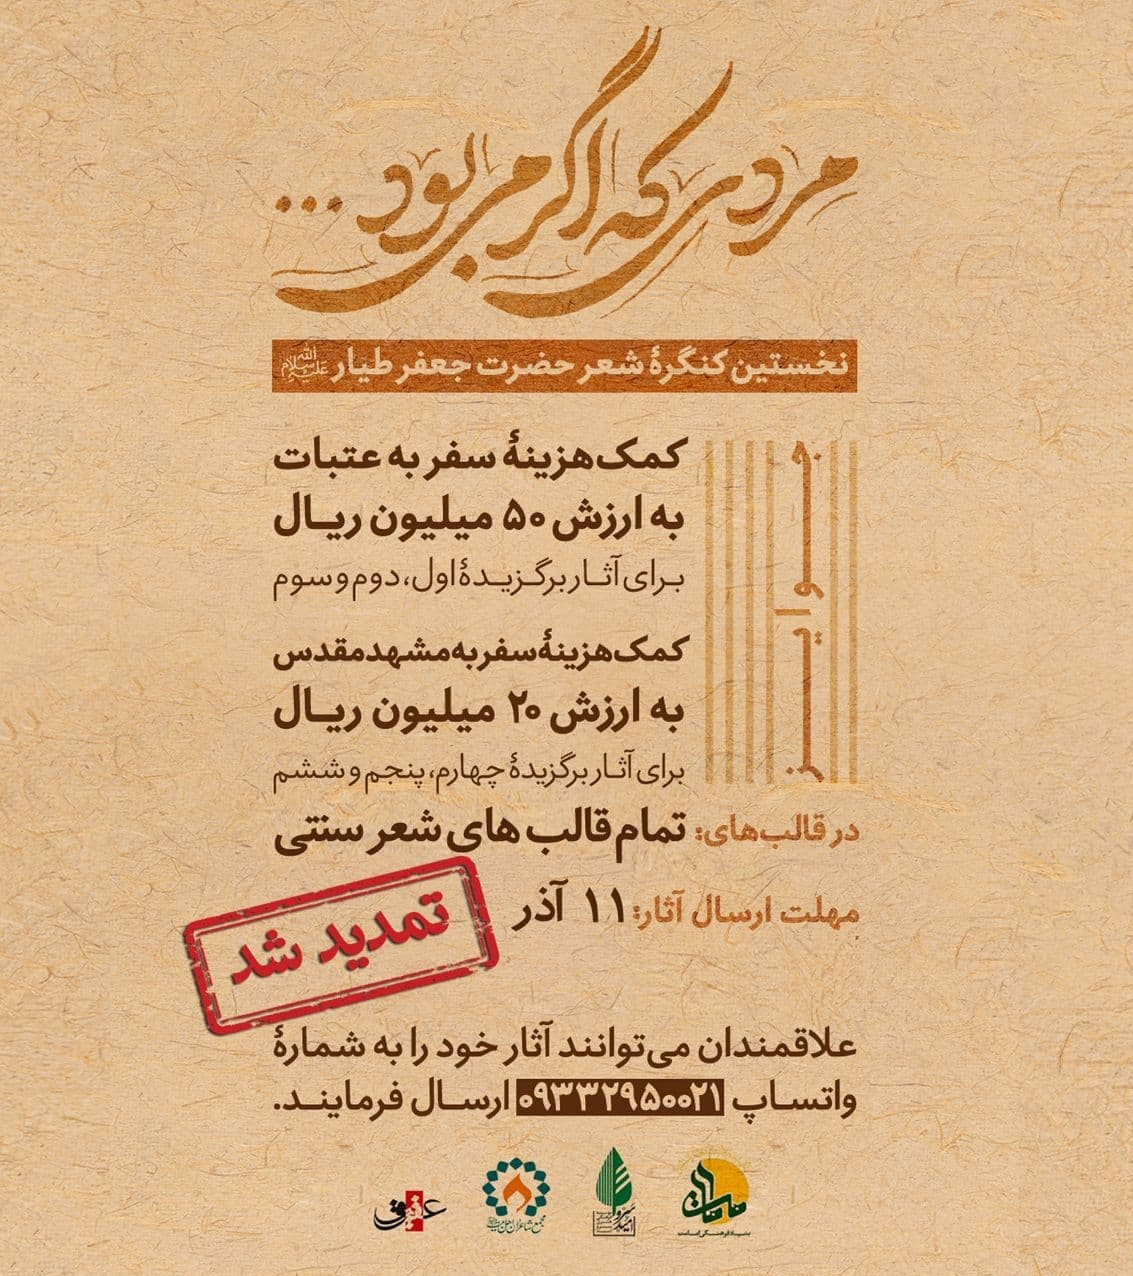 مردی که اگر می‌بود...
نخستین کنگرهٔ شعر حضرت جعفر طیار سلام الله علیه
جوایز
کمک‌هزینهٔ سفر به عتبات
به ارزش ۵۰ میلیون ریال
برای آثار برگزیدهٔ اول، دوم و سوم
کمک‌هزینهٔ سفر به مشهد مقدس
به ارزش ۲۰ میلیون ریال
برای آثار برگزیدهٔ چهارم، پنجم و ششم
در قالب‌های: تمام قالب های شعر سنتی
مهلت ارسال آثار: ۱۱ آذر
تمدید شد
علاقمندان می‌توانند آثار خود را به شمارهٔ
واتساپ ۰۹۳۳۲۹۵۰۰۲۱ ارسال فرمایند.
بنیاد فرهنگی امامت
امید سرو
مجمع شاعران اهل بیت